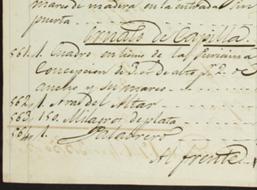 mares de madera en la entrada sin
puerta
Ornato de Capilla.
561. 1. Cuadro en lienzo de la Purisima
Concepcion de 3 . de alto 2 . de
ancho y su marco
562. 1. Ara del Altar
563. 150. Milagros de plata
564. 1.
Al frente